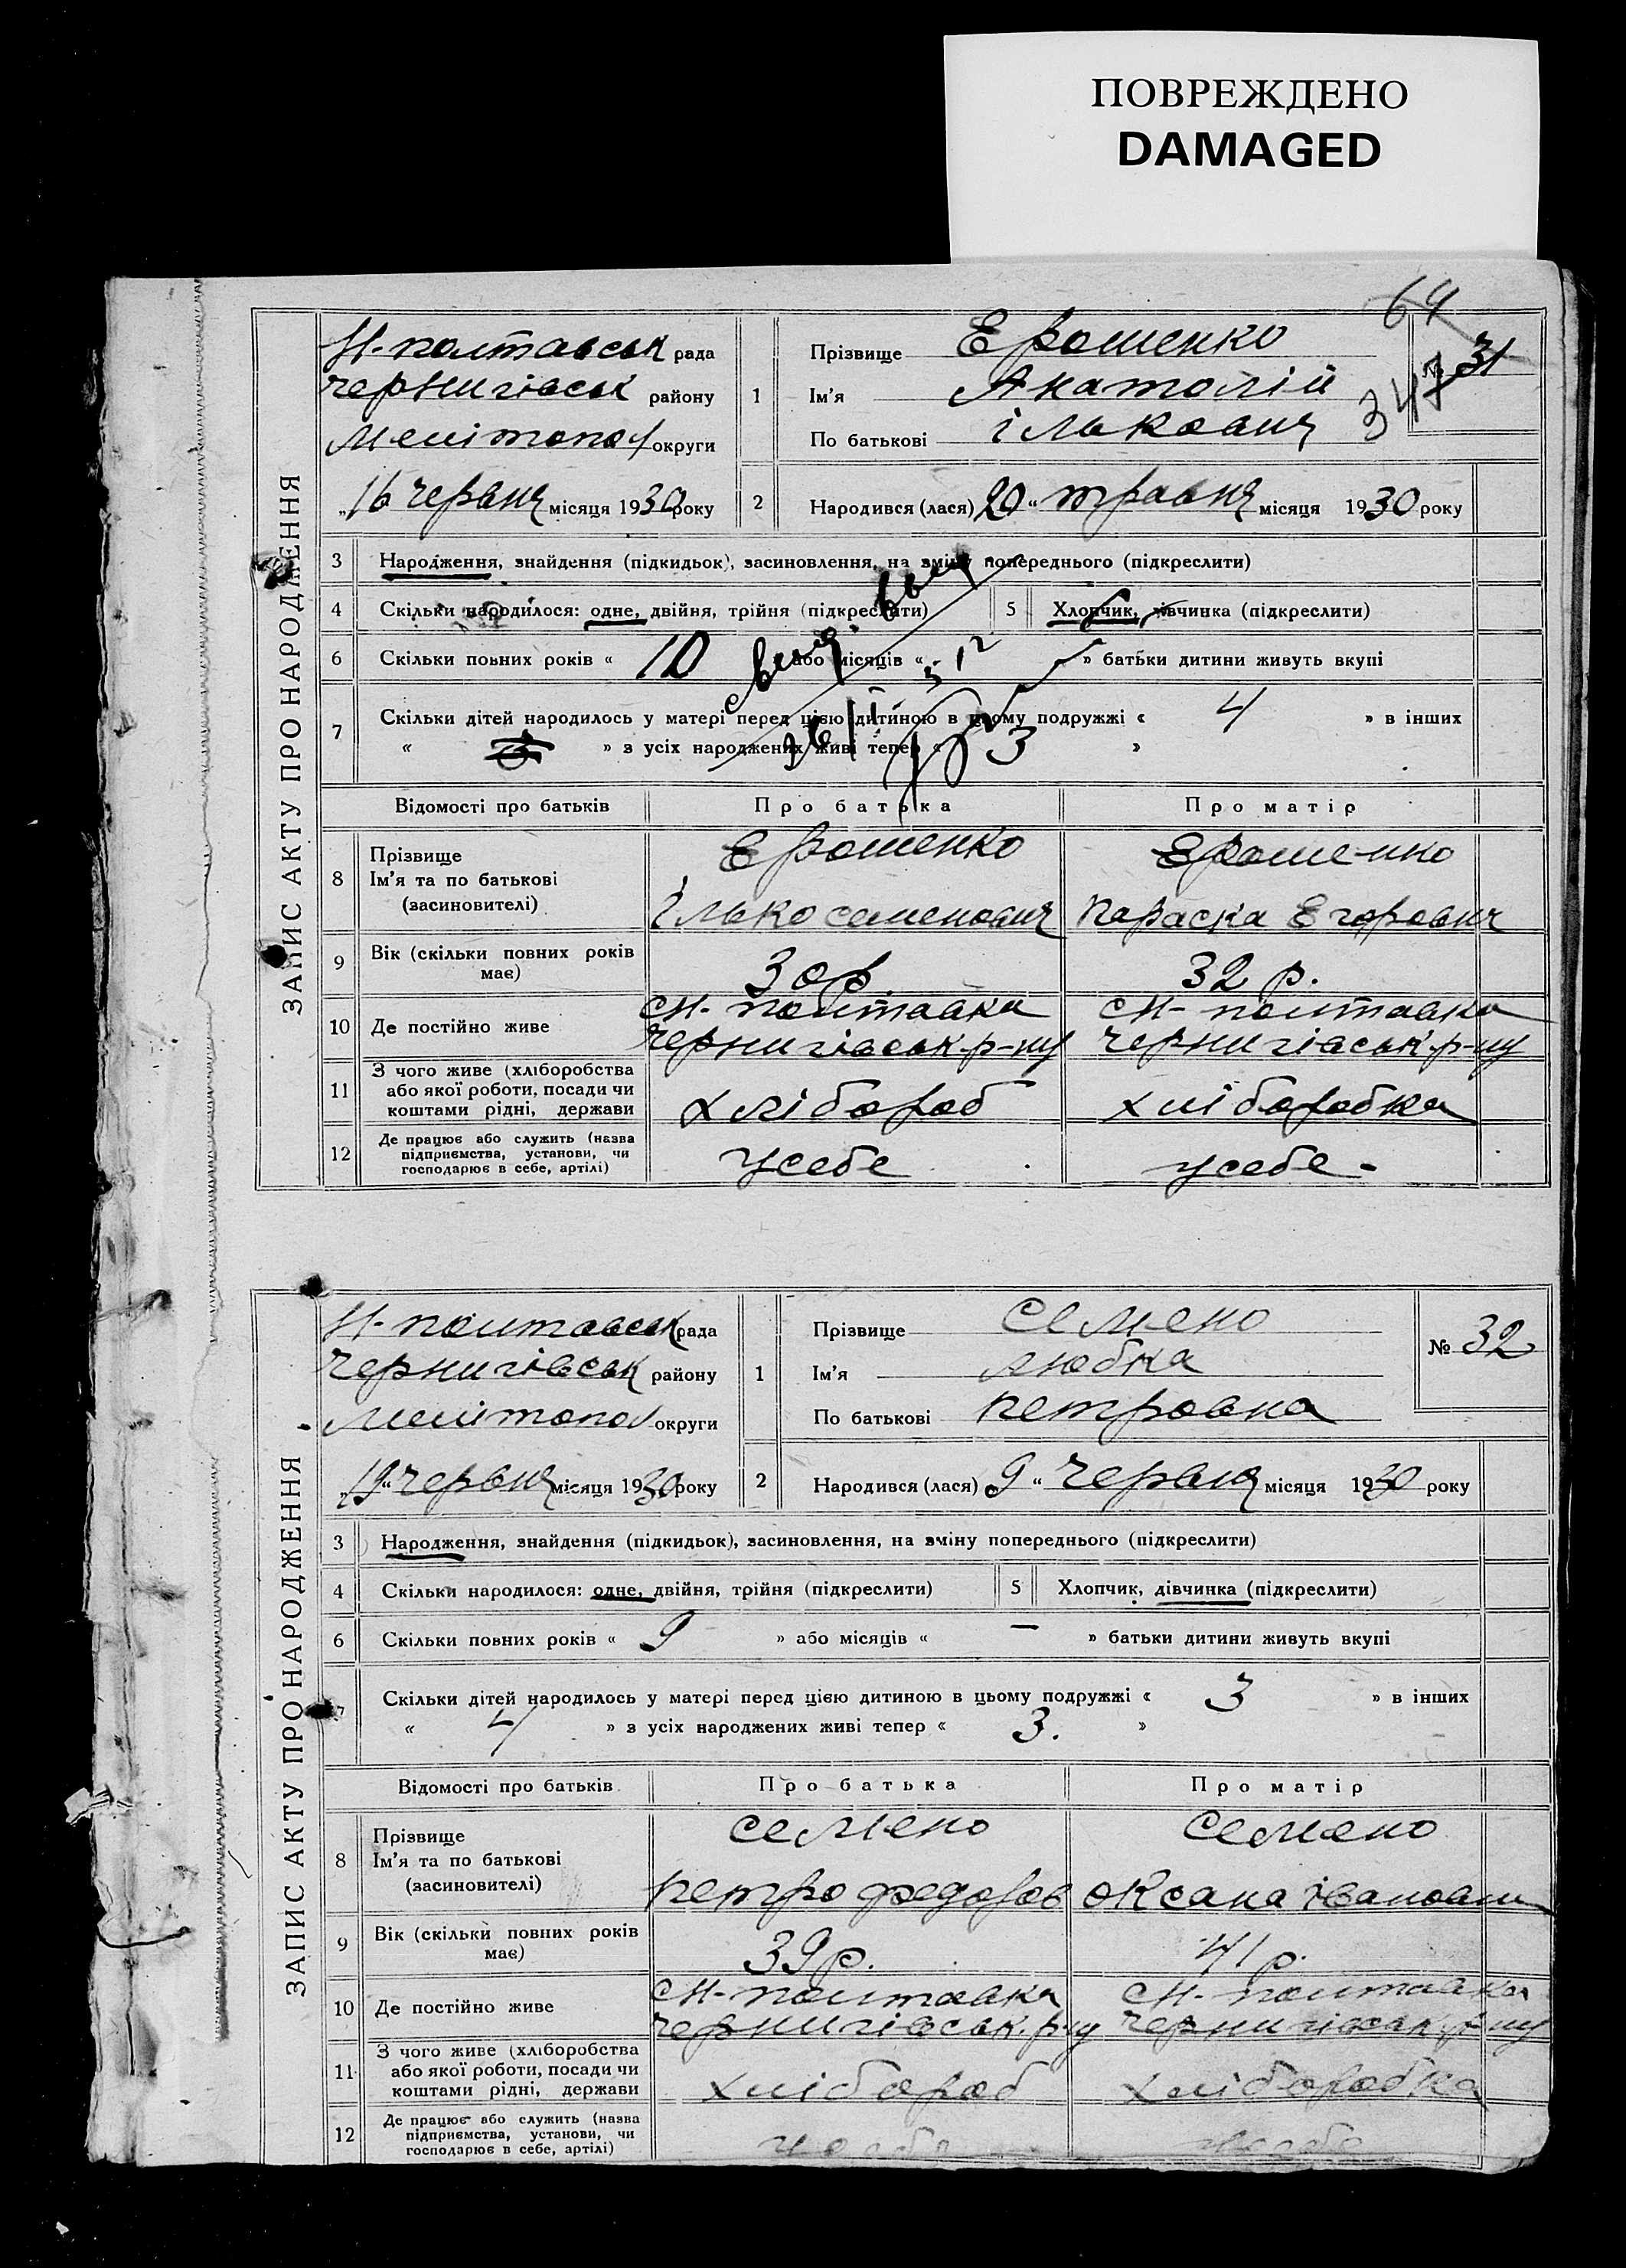 ПОВРЕЖДЕНО
DAMAGED
64
ЗАПИС АКТУ ПРО НАРОДЖЕННЯ
Н-полтавськ рада
Чернигівськ району
Мелітопол округи
„16 червня місяця 1930 року
1 Прізвище Ерошенко
Ім'я Анатолій
По батькові Ількович
№ 31
347
2 Народився (лася) 20 “ травня місяця 1930 року
3 Народження, знайдення (підкидьок), засиновлення, на зміну попереднього (підкреслити)
4 Скільки народилося: одне, двійня, трійня (підкреслити) 5 Хлопчик, дівчинка (підкреслити)
6 Скільки повних років « 10 або місяців « » батьки дитини живуть вкупі
7 Скільки дітей народилось у матері перед цією дитиною в цьому подружжі « 4 » в інших
« » з усіх народжених живі тепер « 3 »
Відомості про батьків Про батька Про матір
8 Прізвище Ерошенко Ерошенко
Ім'я та по батькові
(засиновителі) Ілько Семенович Параска Егорович
9 Вік (скільки повних років має) 30 р. 32 р.
10 Де постійно живе сН-полтавка сН-полтавка
Чернигівськ. р-ну Чернигівськ. р-ну
11 З чого живе (хліборобства
або якої роботи, посади чи
коштами рідні, держави хлібороб хліборобка
12 Де працює або служить (назва
підприємства, установи, чи
господарює в себе, артілі) усебе усебе
ЗАПИС АКТУ ПРО НАРОДЖЕННЯ
Н-полтавськ рада
Чернигівськ району
Мелітопол округи
„19“ червня місяця 1930 року
1 Прізвище Семено
Ім'я Любка
По батькові Петровна
№ 32
2 Народився (лася) 9 “ червня місяця 1930 року
3 Народження, знайдення (підкидьок), засиновлення, на зміну попереднього (підкреслити)
4 Скільки народилося: одне, двійня, трійня (підкреслити) 5 Хлопчик, дівчинка (підкреслити)
6 Скільки повних років « 9 » або місяців « — » батьки дитини живуть вкупі
7 Скільки дітей народилось у матері перед цією дитиною в цьому подружжі « 3 » в інших
« 4 » з усіх народжених живі тепер « 3. »
Відомості про батьків Про батька Про матір
8 Прізвище Семено Семено
Ім'я та по батькові
(засиновителі) Петро Федоров Оксана Івановн
9 Вік (скільки повних років має) 39 р. 41 р.
10 Де постійно живе сН-полтавка сН-полтавка
Чернигівськ. р-ну Чернигівськ. р-ну
11 З чого живе (хліборобства
або якої роботи, посади чи
коштами рідні, держави хлібороб хліборобка
12 Де працює або служить (назва
підприємства, установи, чи
господарює в себе, артілі) усебе усебе